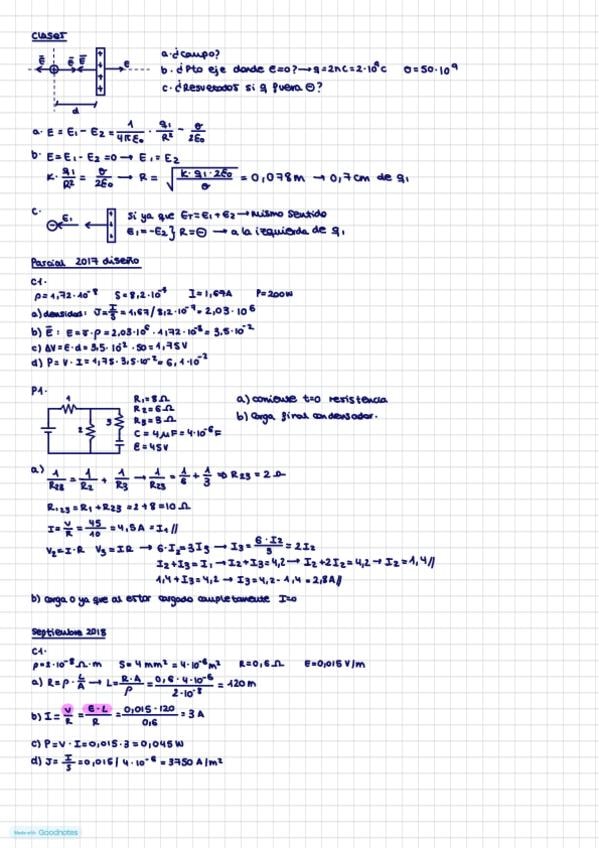 Clase 7
a. ¿campo?
b. ¿Pto eje donde E=0? → q=2nC=2·10⁹C σ=50·10⁹
c. ¿Resultados si q fuera ⊖?
E E E e
d
a. E = E₁ - E₂ = 1/4πε₀ · q₁/R² - σ/2ε₀
b. E = E₁ - E₂ = 0 → E₁ = E₂
K · q₁/R² = σ/2ε₀ → R = √(K·q₁·2ε₀/σ) = 0,078m → 0,7cm de q₁
c. E₁ si ya que ET = E₁ + E₂ → mismo sentido
E₁ = -E₂} R = ⊖ → a la izquierda de q₁
Parcial 2017 diseño
C1.
ρ = 1,72·10⁻⁸ S = 8,2·10⁻⁷ I = 1,67A P = 200W
a) densidad: J = I/S = 1,67/8,2·10⁻⁷ = 2,03·10⁶
b) E: E = J·ρ = 2,03·10⁶ · 1,72·10⁻⁸ = 3,5·10⁻²
c) ΔV = E·d = 3,5·10² · 50 = 1,75V
d) P = V·I = 1,75·3,5·10⁻² = 6,1·10⁻²
P1.
1 2 3
R₁ = 8Ω
R₂ = 6Ω
R₃ = 3Ω
C = 4μF = 4·10⁻⁶F
ε = 45V
a) corriente t=0 resistencia
b) Carga final condensador.
a) 1/R₂₃ = 1/R₂ + 1/R₃ → 1/R₂₃ = 1/6 + 1/3 ⇒ R₂₃ = 2Ω
R₁₂₃ = R₁ + R₂₃ = 2+8 = 10Ω
I = V/R = 45/10 = 4,5A = I₁//
V₂ = I·R V₃ = IR → 6·I₂ = 3I₃ → I₃ = 6·I₂/3 = 2I₂
I₂+I₃ = I₁ → I₂+I₃ = 4,2 → I₂+2I₂ = 4,2 → I₂ = 1,4//
1,4+I₃ = 4,2 → I₃ = 4,2-1,4 = 2,8A//
b) carga 0 ya que al estar cargado completamente I=0
Septiembre 2018
C1.
ρ = 2·10⁻⁸ Ω·m S = 4mm² = 4·10⁻⁶m² R = 0,6Ω E = 0,015 V/m
a) R = ρ · L/A → L = R·A/ρ = 0,6·4·10⁻⁶/2·10⁻⁸ = 120m
b) I = V/R = E·L/R = 0,015·120/0,6 = 3A
c) P = V·I = 0,015·3 = 0,045W
d) J = I/S = 0,015/4·10⁻⁶ = 3750 A/m²
Made with Goodnotes